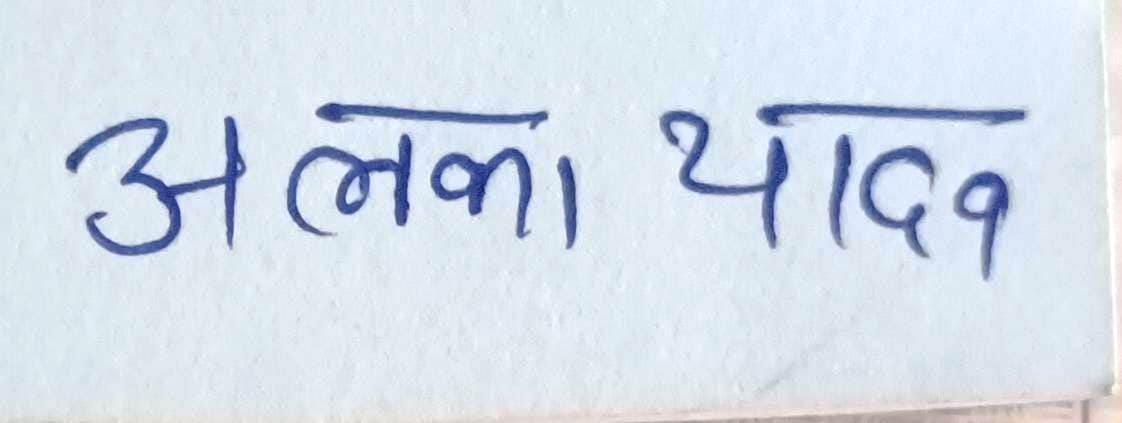 अलका यादव